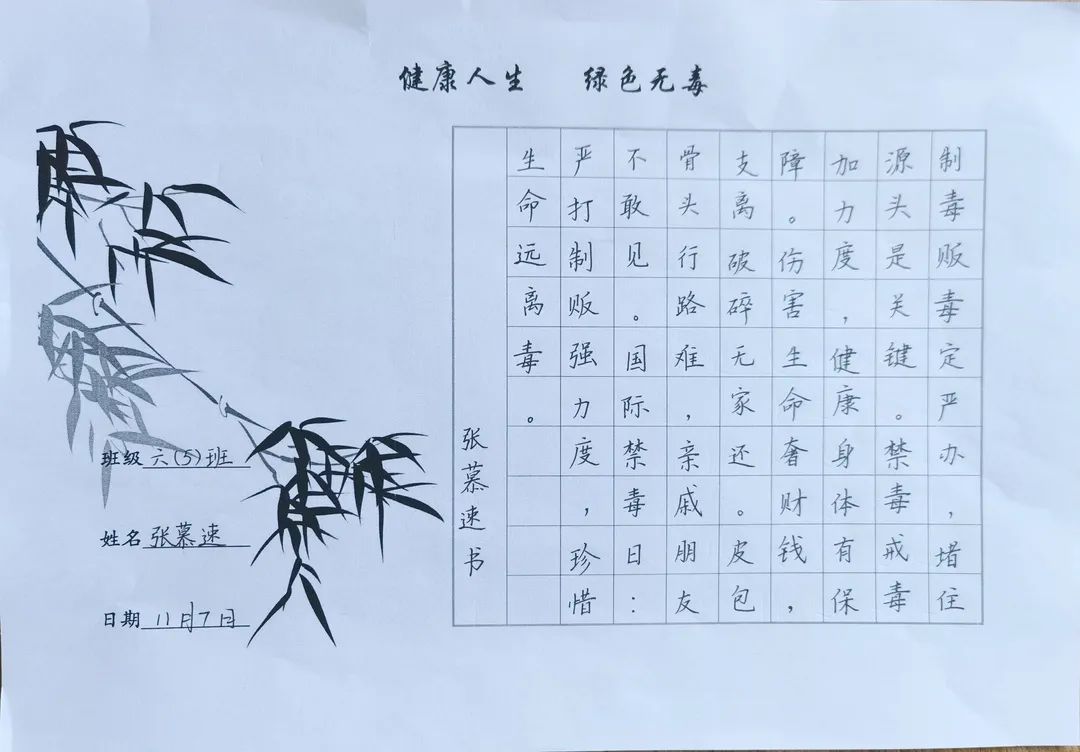 健康人生 绿色无毒
制毒贩毒定严办，堵住
源头是关键。禁毒戒毒
加力度，健康身体有保
障。伤害生命奢财钱，
支离破碎无家还。皮包
骨头行路难，亲戚朋友
不敢见。国际禁毒日：
严打制贩强力度，珍惜
生命远离毒。
张慕速书
班级 六(5)班
姓名 张慕速
日期 11月7日